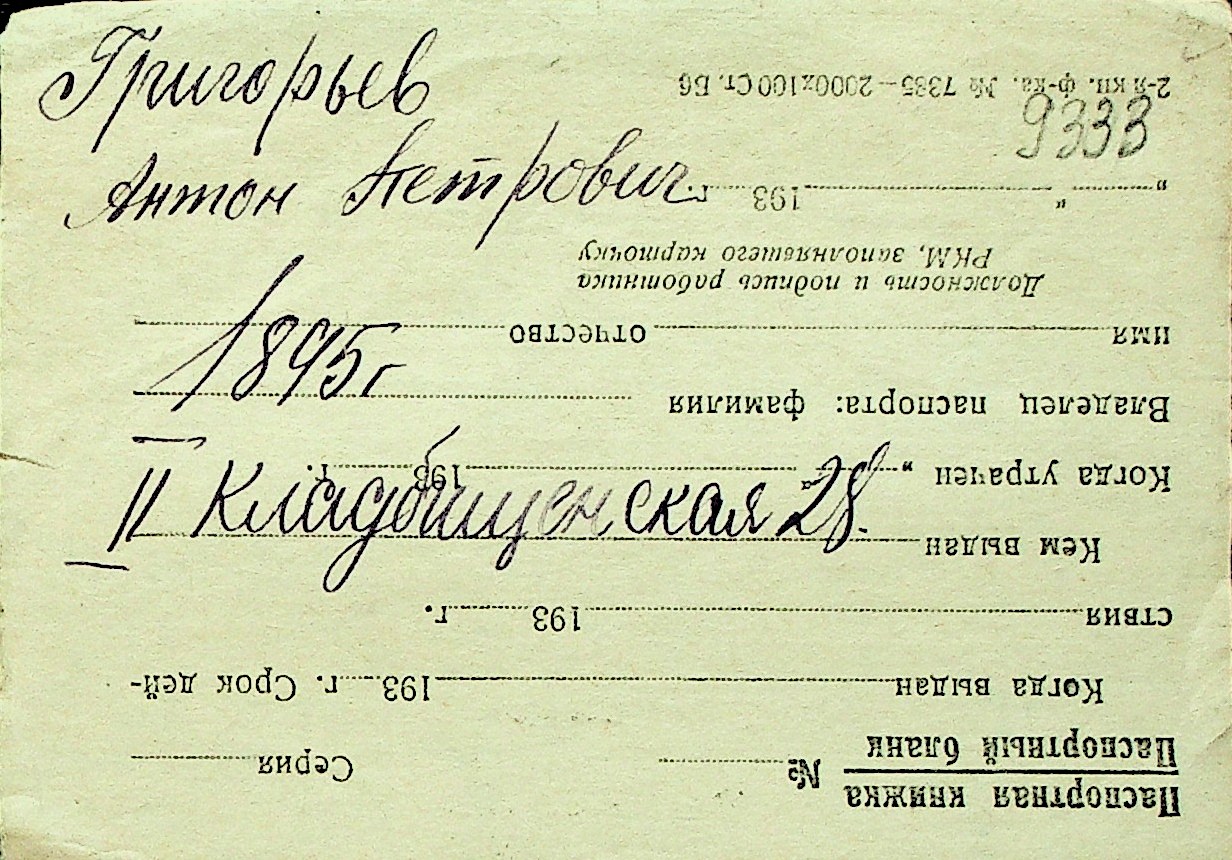 Григорьев
Антон Петрович
1895 г
II Кладбищенская 28.
9333
Паспортная книжка
Паспортный бланк
№ Серия
Когда выдан 193 г. Срок дей-
ствия 193 г.
Кем выдан
Когда утрачен „ “ 193 г.
Владелец паспорта: фамилия
имя отчество
Должность и подпись работника
РКМ, заполнявшего карточку
„ “ 193 г.
2-я кн. ф-ка. № 7385—2000х100 Ст. Б6